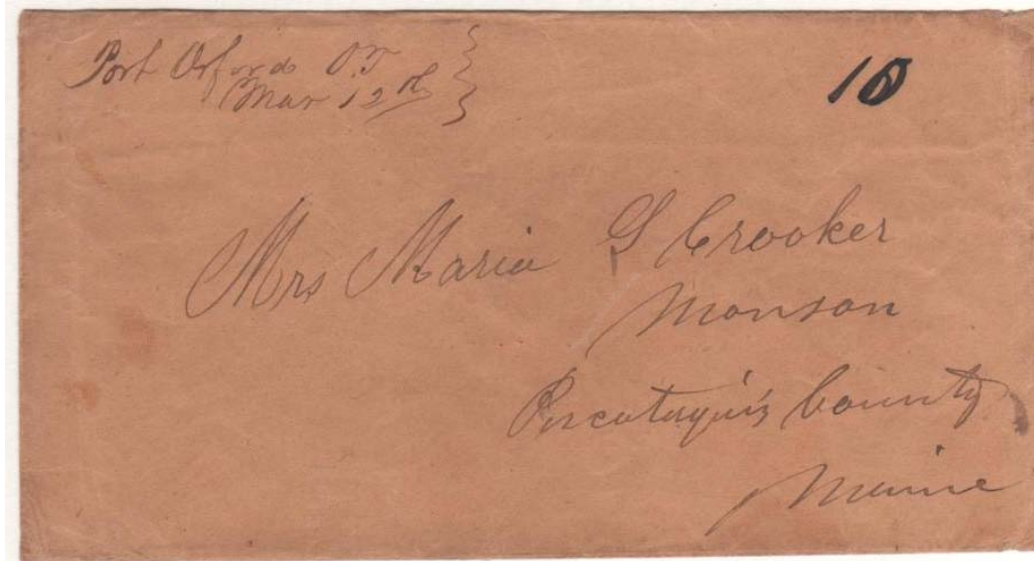 Port Orford O.T
Mar 12th
10
Mrs Maria G Crooker
Monson
Piscataquis County
Maine